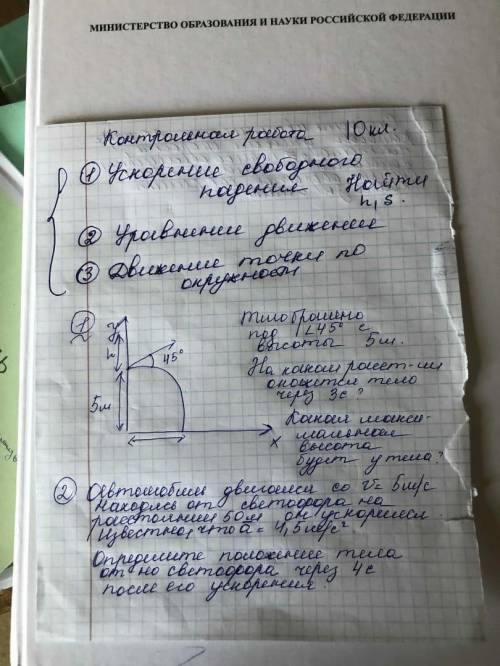 МИНИСТЕРСТВО ОБРАЗОВАНИЯ И НАУКИ РОССИЙСКОЙ ФЕДЕРАЦИИ
Контрольная работа 10кл.
① Ускорение свободного
падения Найти
h, S.
② Уравнение движение
③ Движение точки по
окружности
①
y
h
45°
5м
x
Тело брошено
под ∠45° с
высоты 5м.
На каком расст-ии
окажется тело
через 3с?
Какая макси-
мальная
высота
будет у тела?
② Автомобиль двигался со v= 5м/с
находясь от светофора на
расстоянии 50м он ускорился.
Известно, что a = 1,5м/с²
Определите положение тела
от но светофора через 4с
после его ускорения.